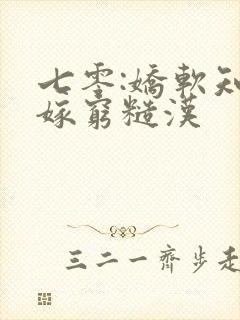 七零:嬌軟知
嫁窮糙漢
三二一齊步走